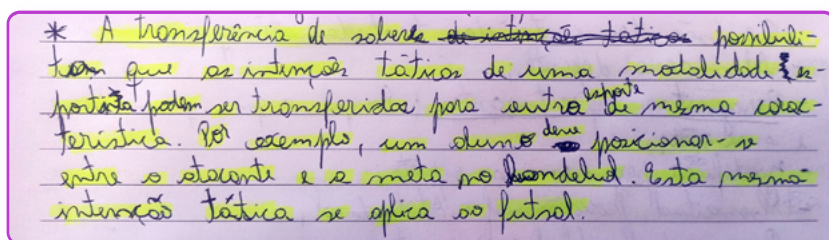 * A transferência de saberes de intenções táticas possibili-
tam que as intenções táticas de uma modalidade es-
portista podem ser transferidas para outro esporte de mesma carac-
terística. Por exemplo, um aluno deve posicionar-se
entre o atacante e a meta no handebol. Esta mesma
intenção tática se aplica ao futsal.